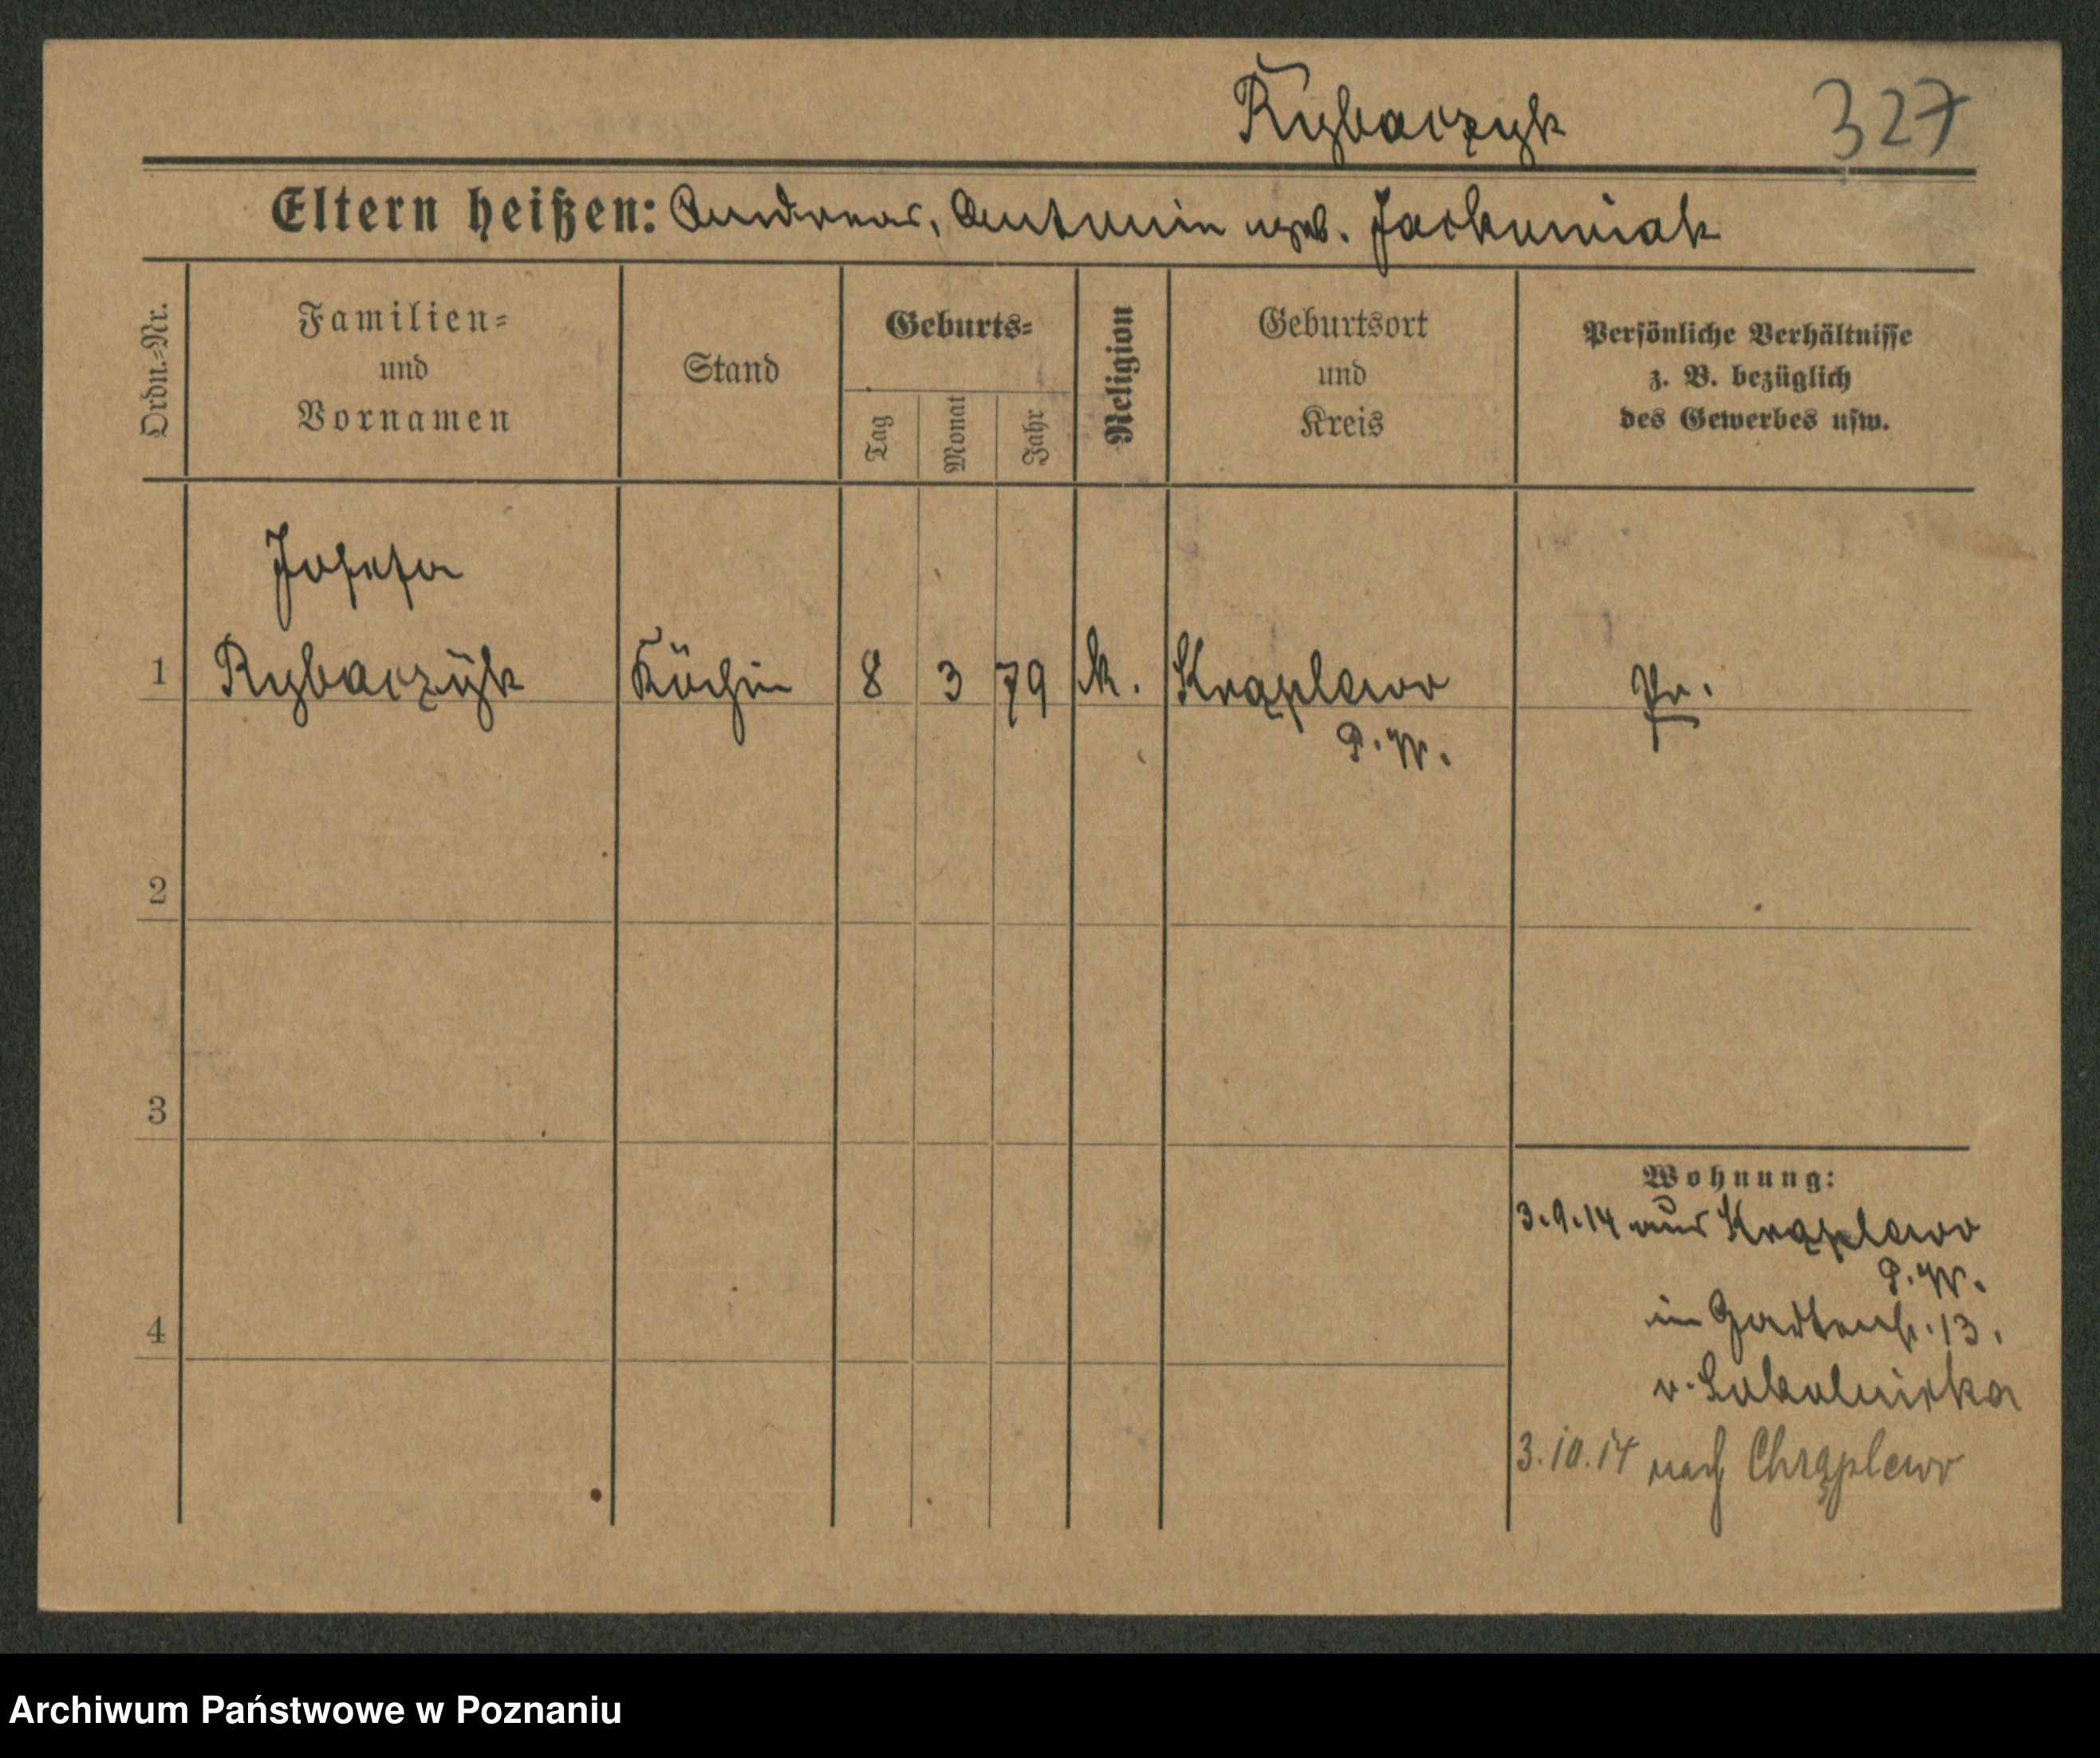 Rybarczyk 327
Eltern heißen: Andreas, Antonin geb. Jackowiak
Ordn.-Nr.
Familien=
und
Vornamen
Stand
Geburts=
Tag
Monat
Jahr
Religion
Geburtsort
und
Kreis
Persönliche Verhältnisse
z. B. bezüglich
des Gewerbes usw.
Josefa
1 Rybarczyk Köchin 8 3 79 k. Krąplewo Pr.
P. W.
2
3
4
Wohnung:
3.9.14 aus Krąplewo
P. W.
in Gartenstr. 13.
v. Sokolnicka
3.10.14 nach Chrąplewo
Archiwum Państwowe w Poznaniu